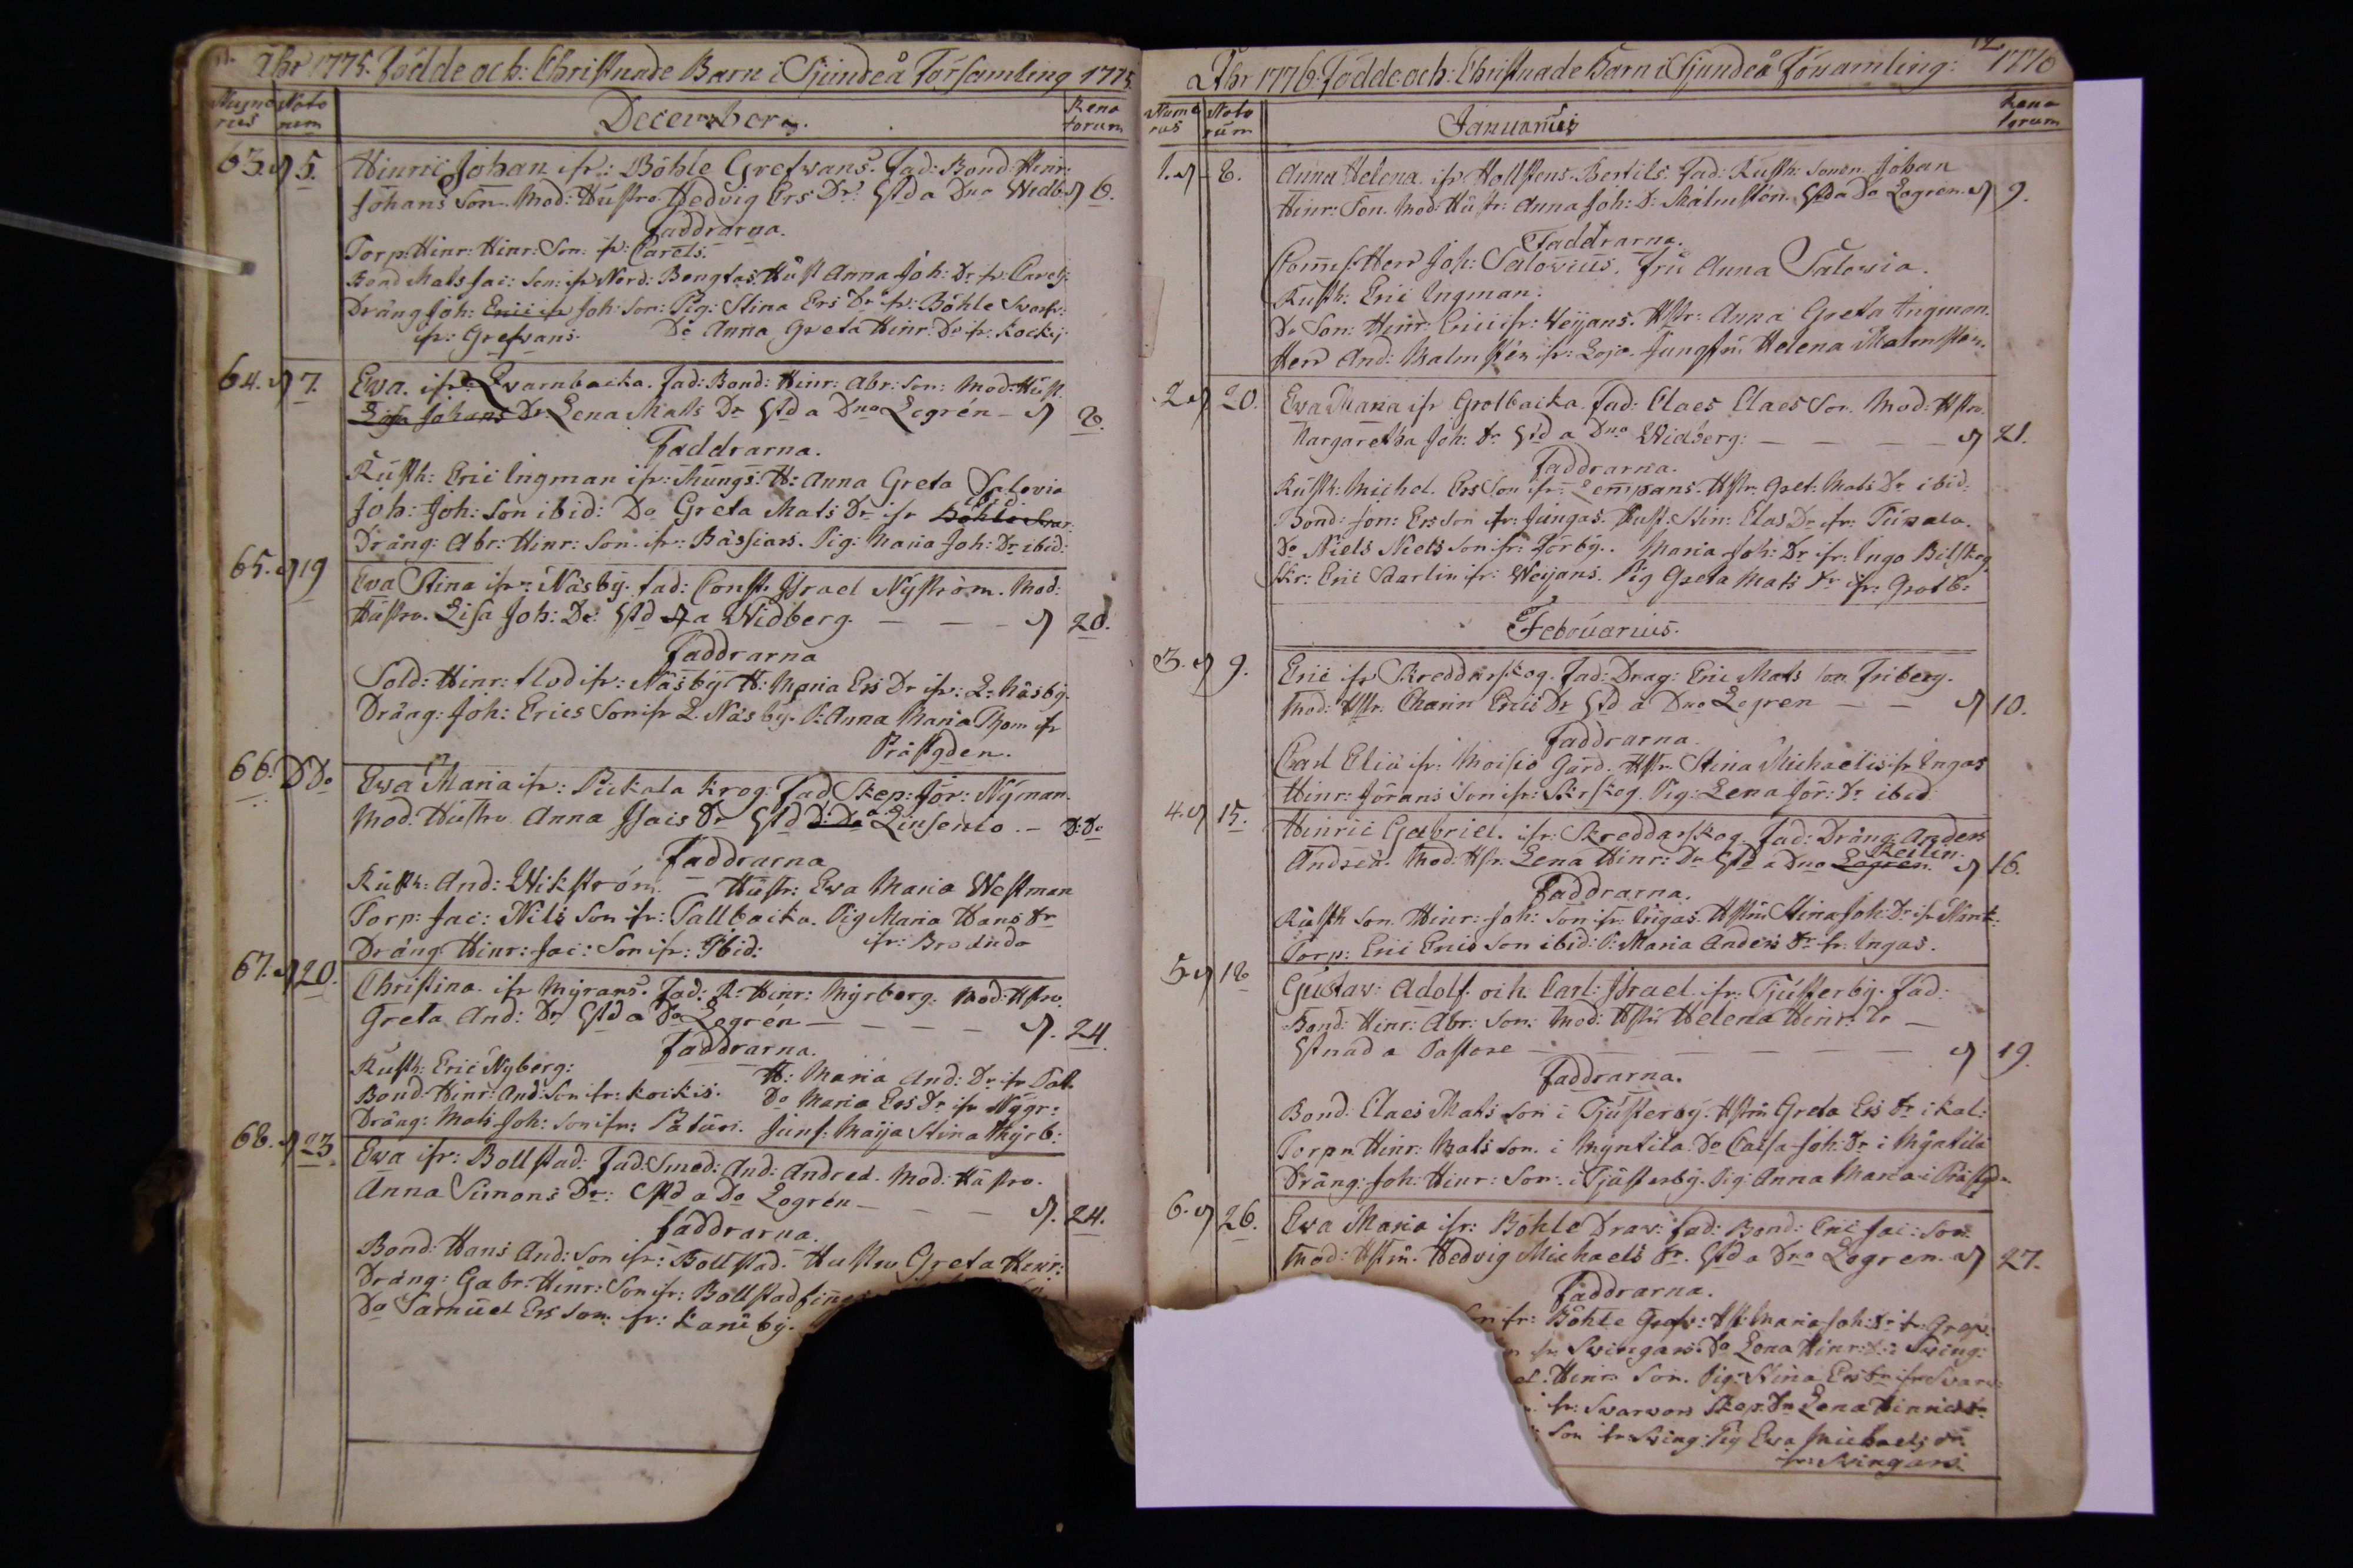 11. Åhr 1775. Födde och: Christnade Barn i Sjundeå Församling 1775
Nume Nato
rus rum December. Rena
torum
63. d 5. Hinric Johan ifr: Böhle Grefvans. Fad: Bond: Hinr:
Johans Son. Mod: Hustro. Hedvig Ers Dr. Std a Dno Widb: d 6.
Faddrarna.
Torp: Hinr: Hinr: Son. fr: Carels.
Bond Mats Jac: Son: ifr Nord: Bengtas. Hust Anna Joh: Dr. fr: Carels
Dräng Joh: Erici ifr Joh: Son: Pig: Stina Ers Dr. fr: Böhle Svarfv:
ifr: Grefvans. Do Anna Greta Hinr: Dr fr: Kockis
64. d 7. Ewa. ifr: Qvarnbacka. Fad: Bond: Hinr: Abr: Son: Mod: Hust.
Lisa Johans Dr. Lena Mats Dr Std a Dno Logrén - d 8.
Faddrarna.
Rusth: Eric Ingman ifr: Mungs. H: Anna Greta Salovia
ibid:
Joh: Joh: Son ibid: Do Greta Mats Dr ifr Böhle Svar
Dräng: Abr: Hinr: Son. ifr: Bässars. Pig: Maria Joh: Dr ibid:
65. d 19 Ewa Stina ifr: Näsby. Fad: Const: Israel Nyström. Mod:
Hustro. Lisa Joh: Dr. Std a Widberg. - - - d 20.
Faddrarna
Sold: Hinr: Flod ifr: Näsby. H: Maria Ers Dr ifr: L: Näsby.
Dräng: Joh: Erics Son ifr L. Näsby. P: Anna Maria Thom ifr
Prästgden.
66. D Do Ewa Maria ifr: Pickala Krog. Fad Skep: Jör: Nyman.
Mod. Hustro Anna Isacs Dr Std D: Do a Linsenio. - D: Do
Faddrarna
Rusth: And: Wikström. Hustr: Ewa Maria Westman
Torp: Jac: Nils Son fr: Tallbacka. Pig Maria Hans Dr
Dräng Hinr: Jac: Son ifr: Ibid: ifr: Broända
67. d 20. Christina. ifr Myrans. Fad: R: Hinr: Myrberg: Mod: Hstro.
Greta And: Dr. Std a Do Logrén - - - - d. 24.
Faddrarna.
Rusth: Eric Nyberg: H: Maria And: Dr fr Pal
Bond: Hinr: And: Son fr: Kockis. Do Maria Ers Dr ifr Nygr:
Dräng: Mats Joh: Son ifr: Påtars. Junf: Maija Stina Myrb:
68. d 23. Ewa ifr: Bollstad: Fad: Smed: And: Andreæ. Mod: Hustro.
Anna Simons Dr: Std a Do Logrén - - - d. 24.
Faddrarna.
Bond: Hans And: Son ifr: Bollstad. Hustru Greta Hinr:
Dräng: Gabr: Hinr: Son ifr: Bollstad
Do Samuel Ers Son. fr:
12.
Åhr 1776. Födde och: Christnade Barn i Sjundeå Församling: 1776
Nume Nato
rus rum Januarius Rena
torum
1. d 8. Anna Helena ifr Hollstens. Bertils. Fad: Rusth: Sonen Johan
Hinr: Son. Mod: Hustr: Anna Joh: D: Malmstén. Std a Do Logren. d 9.
Faddrarna.
Comms: Herr Joh: Salovius. Fru Anna Salovia.
Rusth: Eric Ingman.
Do Son: Hinr: Erici fr: Weijans. Hstr: Anna Greta Ingman.
Herr And: Malmstén ifr: Lojo. Jungfru Helena Malmstén.
2. d 20. Ewa Maria ifr Grotbacka. Fad: Claes Claes Son. Mod: Hstro.
Margaretha Joh: Dr Std a Dno Widberg: - - - - d 21.
Faddrarna.
Rusth: Michel. Ers Son ifr: Lempans. Hstr. Gret: Mats Dr ibid:
Bond: Jon: Ers Son ifr: Jungas. Hust. Stin: Clas Dr fr: Pupala.
Do Niels Niels Son fr: Törby. Maria Joh: Dr ifr: Ingo Bilskog
Skr: Eric Starlin ifr: Weijans. Pig Greta Mats Dr ifr: Grotb:
Febouarius.
3. d 9. Eric ifr Skreddarskog. Fad: Drag: Eric Mats Son Friberg.
Mod: Hstr: Charin Erici Dr Std a Dno Logren - - d 10.
Faddrarna.
Carl Eliæ ifr: Moisio Gård. Hstr. Stina Michaelis fr Ingas
Hinr: Jörans Son ifr: Skrskog. Pig: Lena Jör: Dr ibid
4. d 15. Hinric Gabriel. ifr: Skreddarskog. Fad: Dräng: Anders
Andreæ. Mod: Hst. Lena Hinr: Dr Std a Dno Logren. Reilin. d 16.
Faddrarna.
Rusth Son Hinr: Joh: Son ifr: Ingas. Hstru Stina Joh: Dr ifr Stärk:
Torp: Eric Erics Son ibid: P: Maria Anders Dr fr: Ingas.
5. d 18 Gustav: Adolf. och. Carl: Israel. ifr: Tjusterby. Fad:
Bond: Hinr: Abr: Son: Mod: Hstru Helena Hinr: Dr -
Stnad a Pastore - - - - - - - d 19.
Faddrarna.
Bond: Claes Mats Son i Tjusterby. Hstru Greta Ers Dr i Kal:
Torpn. Hinr: Mats Son. i Myntila. Do Caisa Joh: Dr i Myntila
Dräng: Joh: Hinr: Son: i Tjusterby. Pig: Anna Maria i Prästgdn
6. d 26. Ewa Maria ifr: Böhle Drav: Fad: Bond: Eric Jac: Son.
Mod: Hstru. Hedvig Michaels Dr. Std a Dno Logren. d 27.
Faddrarna.
fr: Böhle Grefv: Hst: Maria Joh: Dr fr: Grefv:
ifr Svingars. Do Lena Hinr: D: i Sving:
Hinr: Son. Pig: Stina Ers Dr ifr Svarv:
fr: Svarvars Skep: Dr Lena Hinrics Dr
Son fr: Sving: Pig Ewa Michaels Dr
ifr: Svingars